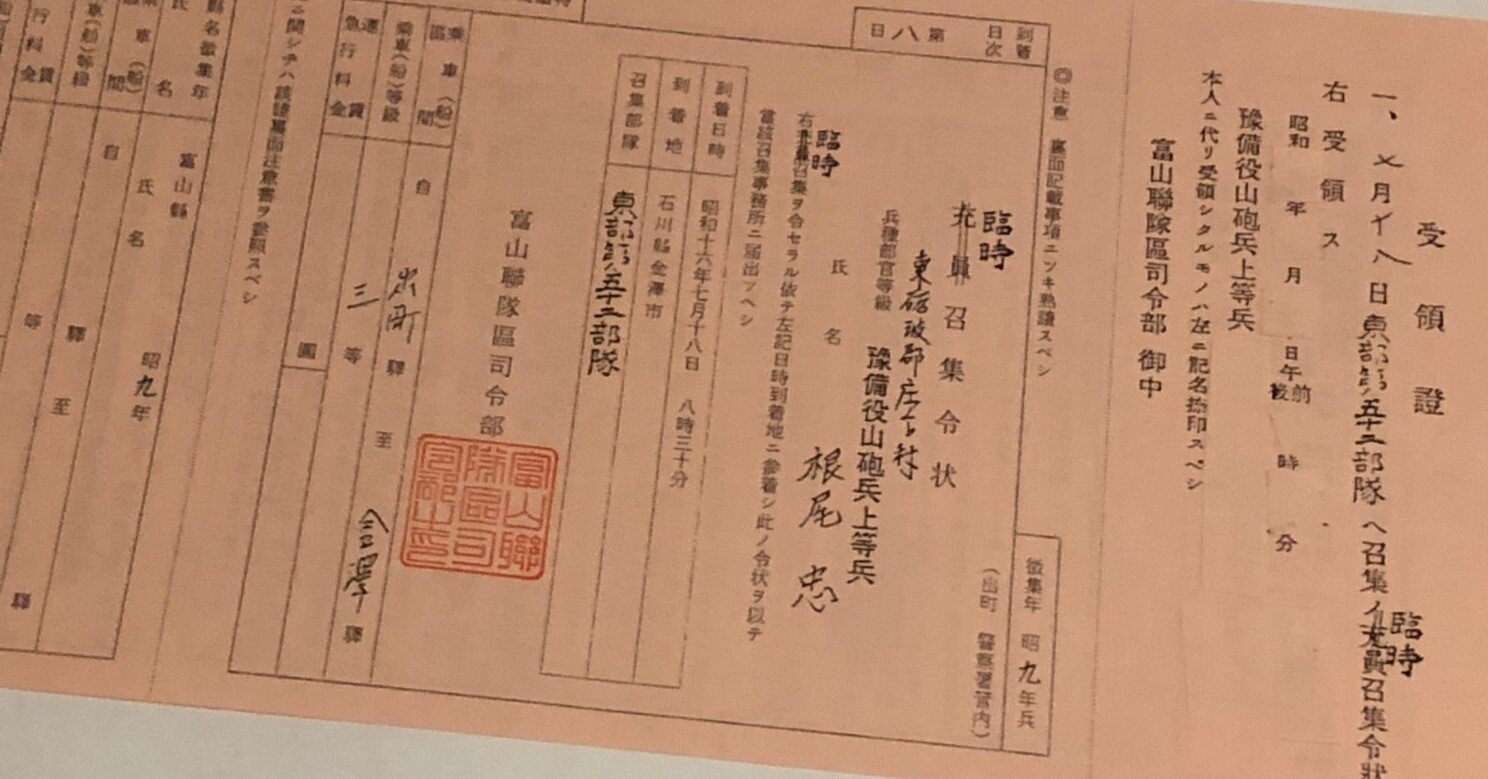 受領證
一、七月十八日東部第五十二部隊ヘ召集ノ臨時充員召集令狀
右受領ス
昭和 年 月 日午前後 時 分
豫備役山砲兵上等兵
本人ニ代リ受領シタルモノハ左ニ記名捺印スベシ
富山聯隊區司令部 御中
◎注意 裏面記載事項ニツキ熟讀スベシ
到着日次 第八日
徵集年 昭九年兵
(出町 警察署管内)
臨時
充員召集令狀
東砺波郡庄下村
兵種部官等級 豫備役山砲兵上等兵
氏名 根尾忠
臨時
右充員召集ヲ令セラル依テ左記日時到着地ニ參着シ此ノ令狀ヲ以テ
當該召集事務所ニ届出ツヘシ
到着日時 昭和十六年七月十八日 八時三十分
到着地 石川縣金澤市
召集部隊 東部第五十二部隊
富山聯隊區司令部
富山聯隊區司令部之印
乘車(船)區間 自 出町 驛 至 金澤 驛
乘車(船)等級 三等
急行料金 圓
ニ關シテハ該證裏面注意書ヲ參照スベシ
縣名徵集年 富山縣 昭九年
氏名 氏名
車(船)間 自 驛 至 驛
車(船)等級 等